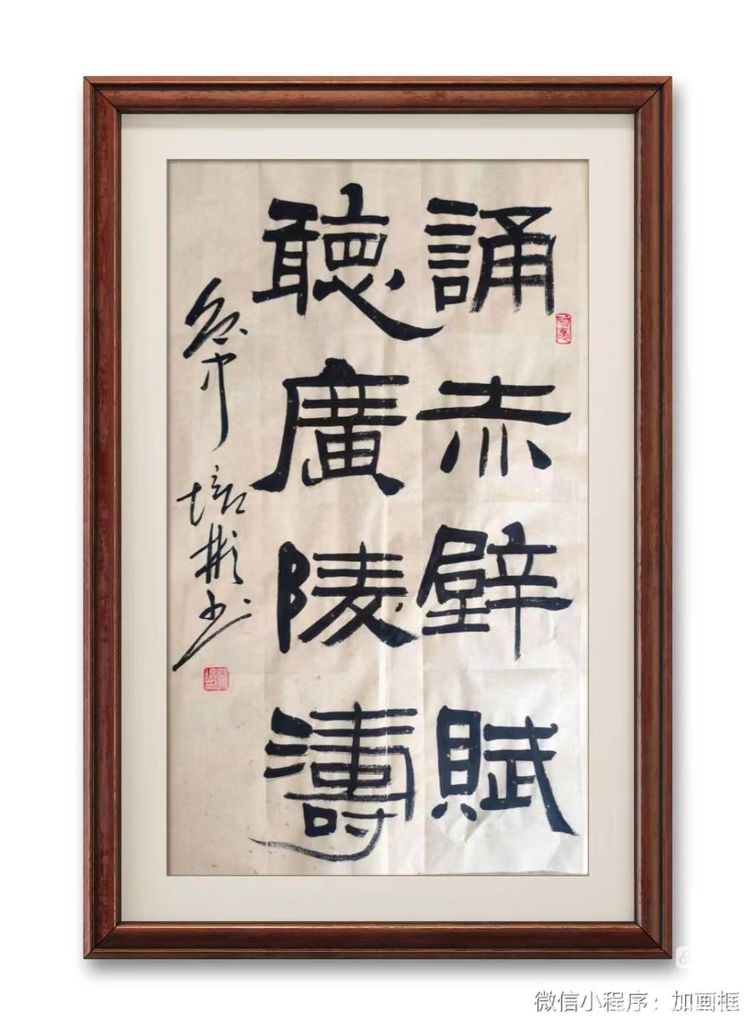 誦赤壁賦
聽廣陵濤
培彬书
微信小程序：加画框